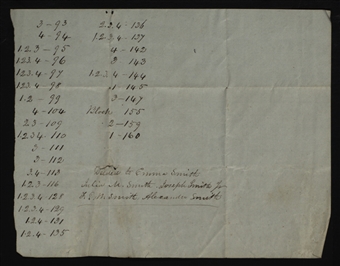 3 - 93
4 - 94
1.2.3 - 95
1.2.3.4 - 96
1.2.3.4 - 97
1.2.3.4 - 98
1.2 - 99
4 - 104
2.3 - 109
1.2.3.4 - 110
3 - 111
3 - 112
3.4 - 113
1.2.3 - 116
1.2.3.4 - 128
1.2.3.4 - 129
1.2.4 - 131
1.2.4 - 135
2.3.4 - 136
1.2.3.4 - 137
4 - 142
3 143
1.2.3.4 - 144
1 - 145
3 - 147
Block 155
2 - 159
1 - 160
to Emma Smith
Julia M. Smith Joseph Smith Jr
F. G. W. Smith Alexander Smith